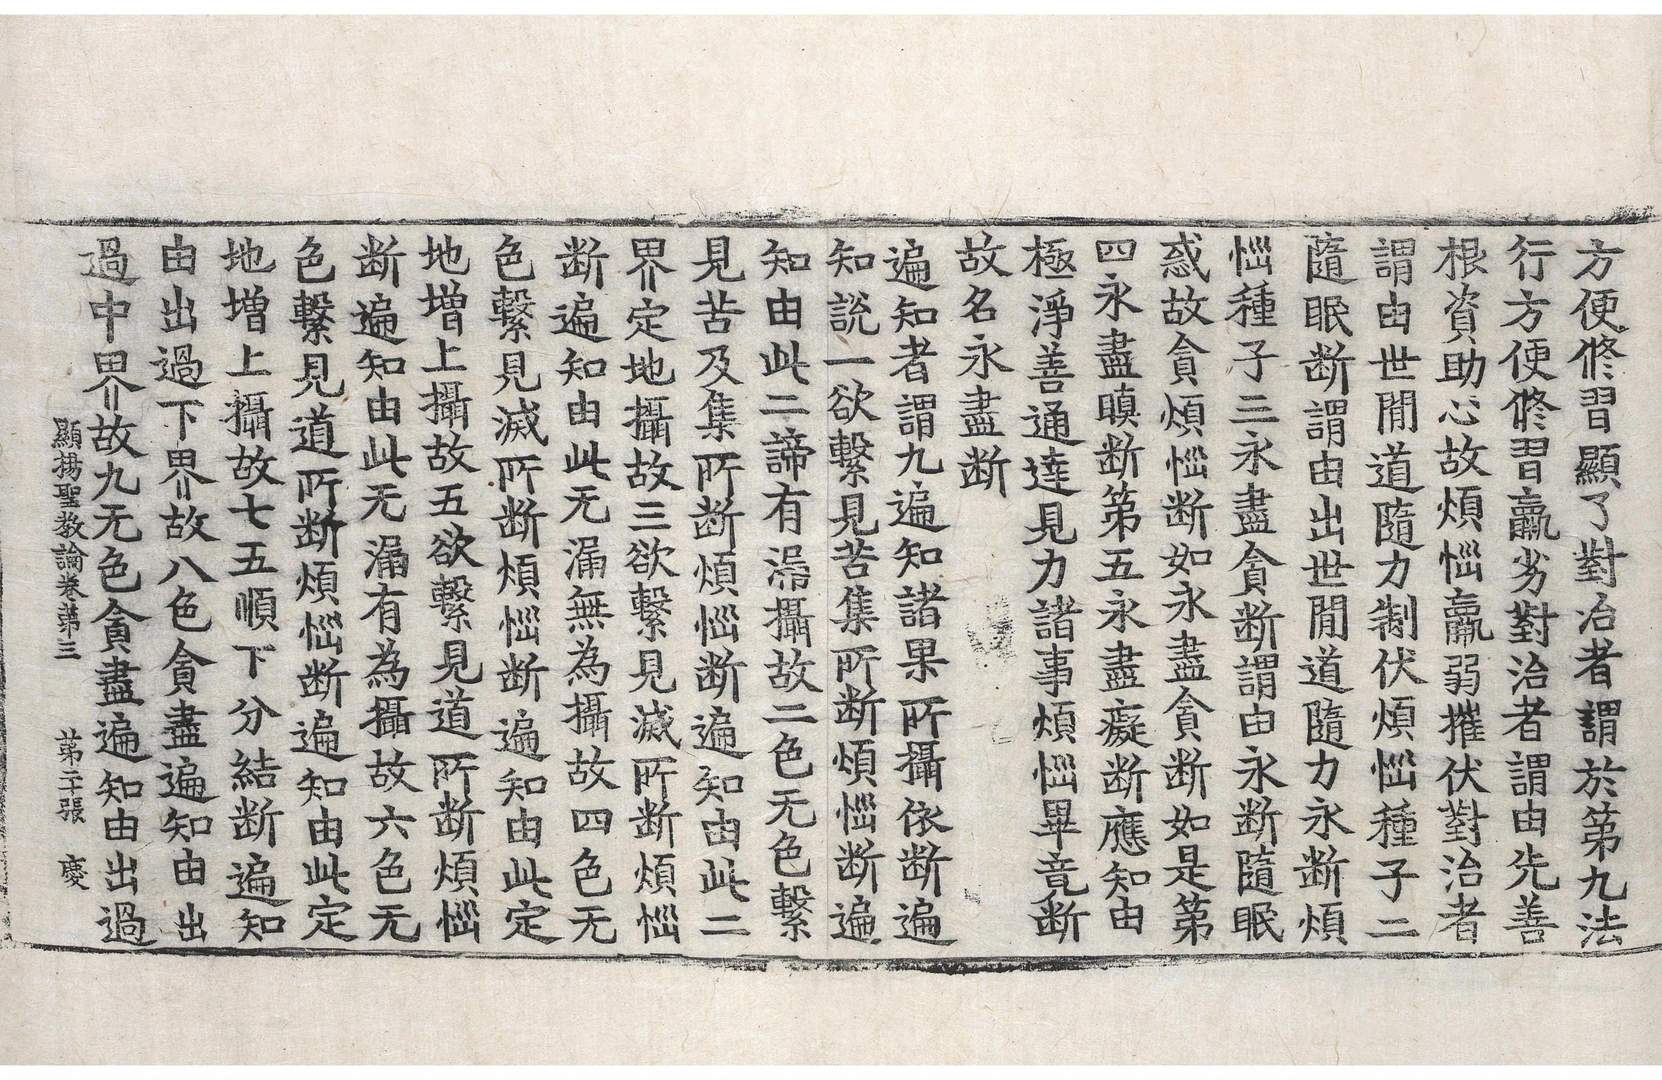 方便修習顯了對治者謂於第九法
行方便修習羸劣對治者謂由先善
根資助心故煩惱羸弱摧伏對治者
謂由世間道隨力制伏煩惱種子二
隨眠断謂由出世間道隨力永断煩
惱種子三永盡貪断謂由永断隨眠
惑故貪煩惱断如永盡貪断如是第
四永盡瞋断第五永盡癡断應知由
極淨善通達見力諸事煩惱畢竟断
故名永盡断
遍知者謂九遍知諸果所攝依断遍
知說一欲繫見苦集所断煩惱断遍
知由此二諦有漏攝故二色无色繫
見苦及集所断煩惱断遍知由此二
界定地攝故三欲繫見滅所断煩惱
断遍知由此无漏無為攝故四色无
色繫見滅所断煩惱断遍知由此定
地增上攝故五欲繫見道所断煩惱
断遍知由此无漏有為攝故六色无
色繫見道所断煩惱断遍知由此定
地增上攝故七五順下分結断遍知
由出過下界故八色貪盡遍知由出
過中界故九无色貪盡遍知由出過
顯揚聖教論卷第三 第二十張 慶